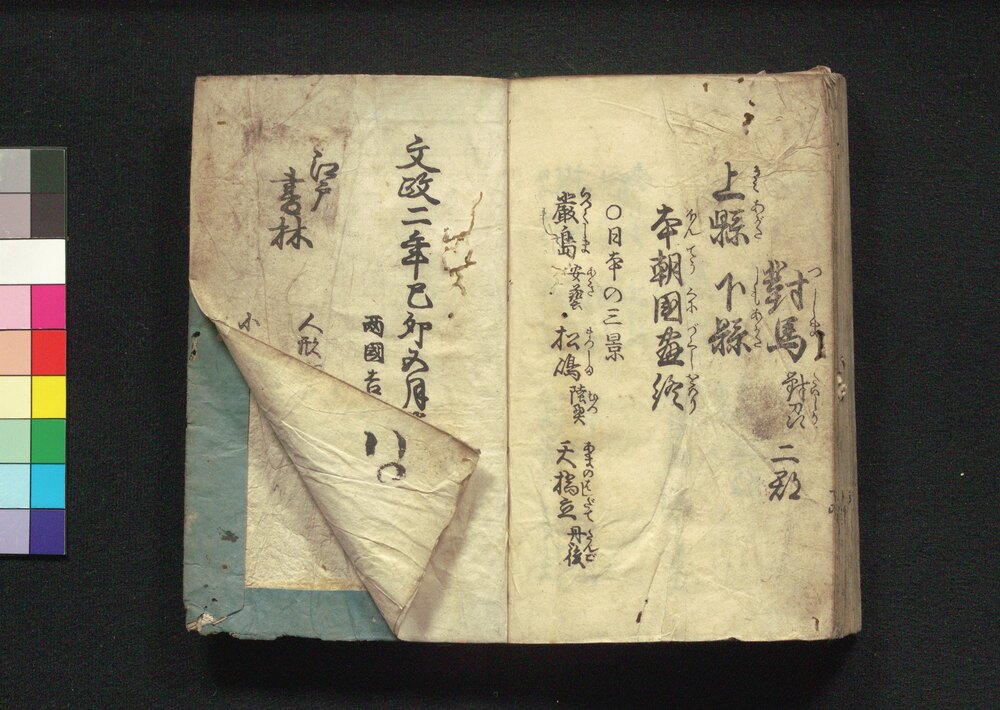 對馬 對州 二郡
つしま
上縣 下縣
かみあがた しもあがた
本朝國盡終
ほんてうくにづくしをはり
〇日本の三景
嚴島 安藝・松嶋 陸奥 天橋立 丹後
いつくしま あき まつしま むつ あまのはしだて たんご
文政二年己卯五月
両國吉
江戸
書林
人形
小
八〇